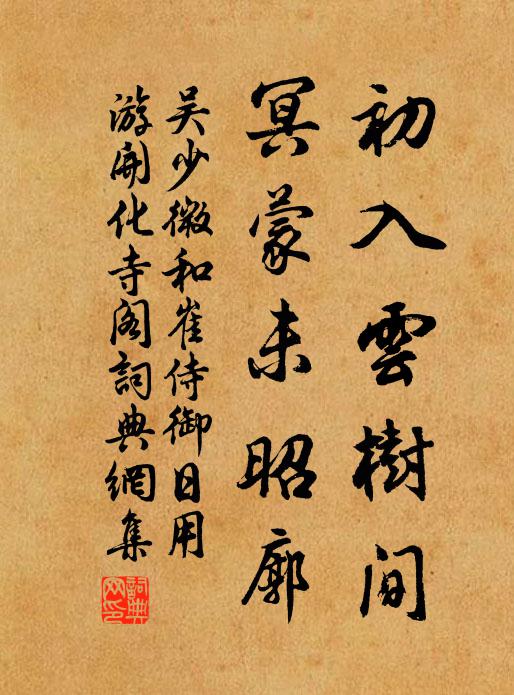 初入雲樹間
冥蒙未昭廓
吴少微和崔侍御日用
游開化寺阁詞典網集
詞典網印